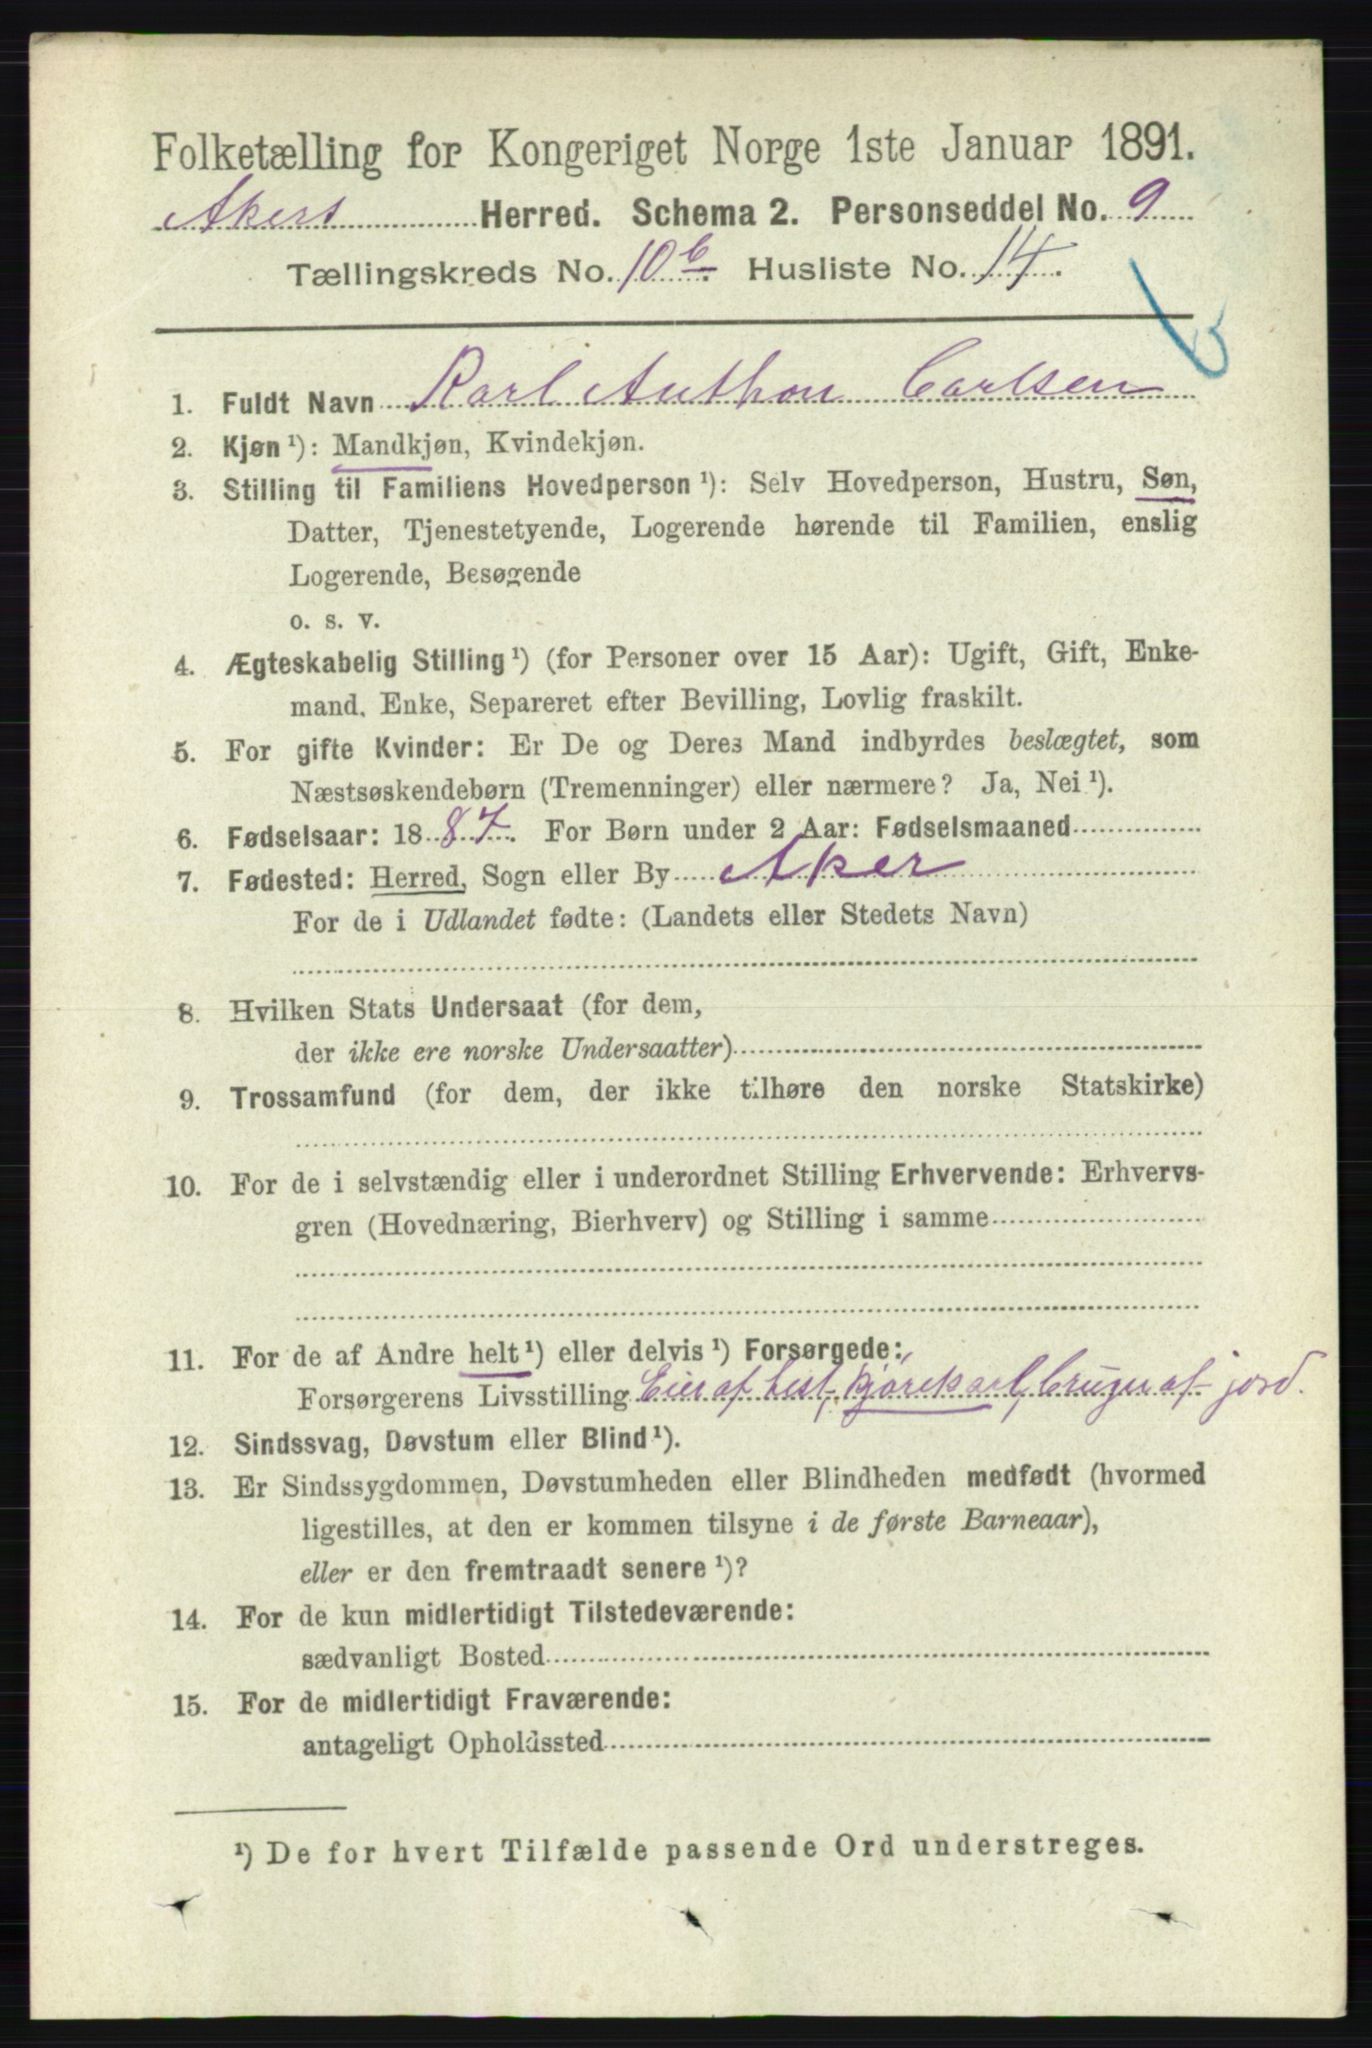 Folketælling for Kongeriget Norge 1ste Januar 1891.
Akers Herred. Schema 2. Personseddel No. 9
Tællingskreds No. 10 b. Husliste No. 14.
1. Fuldt Navn Karl Anthon Carlsen
2. Kjøn ¹): Mandkjøn, Kvindekjøn.
3. Stilling til Familiens Hovedperson ¹): Selv Hovedperson, Hustru, Søn,
Datter, Tjenestetyende, Logerende hørende til Familien, enslig
Logerende, Besøgende
o. s. v.
4. Ægteskabelig Stilling ¹) (for Personer over 15 Aar): Ugift, Gift, Enke-
mand, Enke, Separeret efter Bevilling, Lovlig fraskilt.
5. For gifte Kvinder: Er De og Deres Mand indbyrdes beslægtet, som
Næstsøskendebørn (Tremenninger) eller nærmere? Ja, Nei ¹).
6. Fødselsaar: 18 87. For Børn under 2 Aar: Fødselsmaaned
7. Fødested: Herred, Sogn eller By Aker
For de i Udlandet fødte: (Landets eller Stedets Navn)
8. Hvilken Stats Undersaat (for dem,
der ikke ere norske Undersaatter)
9. Trossamfund (for dem, der ikke tilhøre den norske Statskirke)
10. For de i selvstændig eller i underordnet Stilling Erhvervende: Erhvervs-
gren (Hovednæring, Bierhverv) og Stilling i samme
11. For de af Andre helt ¹) eller delvis ¹) Forsørgede:
Forsørgerens Livsstilling Eier af hest, kjørekarl, bruger af jord.
12. Sindssvag, Døvstum eller Blind ¹).
13. Er Sindssygdommen, Døvstumheden eller Blindheden medfødt (hvormed
ligestilles, at den er kommen tilsyne i de første Barneaar),
eller er den fremtraadt senere ¹)?
14. For de kun midlertidigt Tilstedeværende:
sædvanligt Bosted
15. For de midlertidigt Fraværende:
antageligt Opholdssted
¹) De for hvert Tilfælde passende Ord understreges.